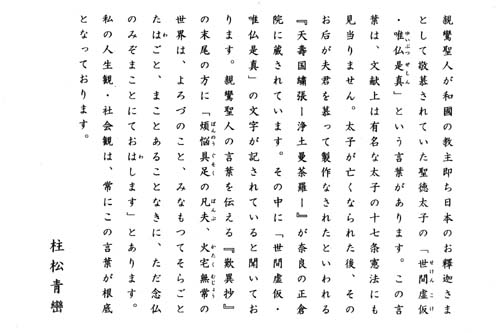 親鸞聖人が和國の教主即ち日本のお釋迦さま
として敬慕されていた聖德太子の「世間虚仮
・唯仏是真」という言葉があります。この言
葉は、文献上は有名な太子の十七条憲法にも
見当りません。太子が亡くなられた後、その
お后が夫君を慕って製作なされたといわれる
『天壽国繡張―浄土曼荼羅―』が奈良の正倉
院に蔵されています。その中に「世間虚仮・
唯仏是真」の文字が記されていると聞いてお
ります。親鸞聖人の言葉を伝える『歎異抄』
の末尾の方に「煩悩具足の凡夫、火宅無常の
世界は、よろづのこと、みなもつてそらごと
たはごと、まことあることなきに、ただ念仏
のみぞまことにておはします」とあります。
私の人生観・社会観は、常にこの言葉が根底
となっております。
柱松青巒